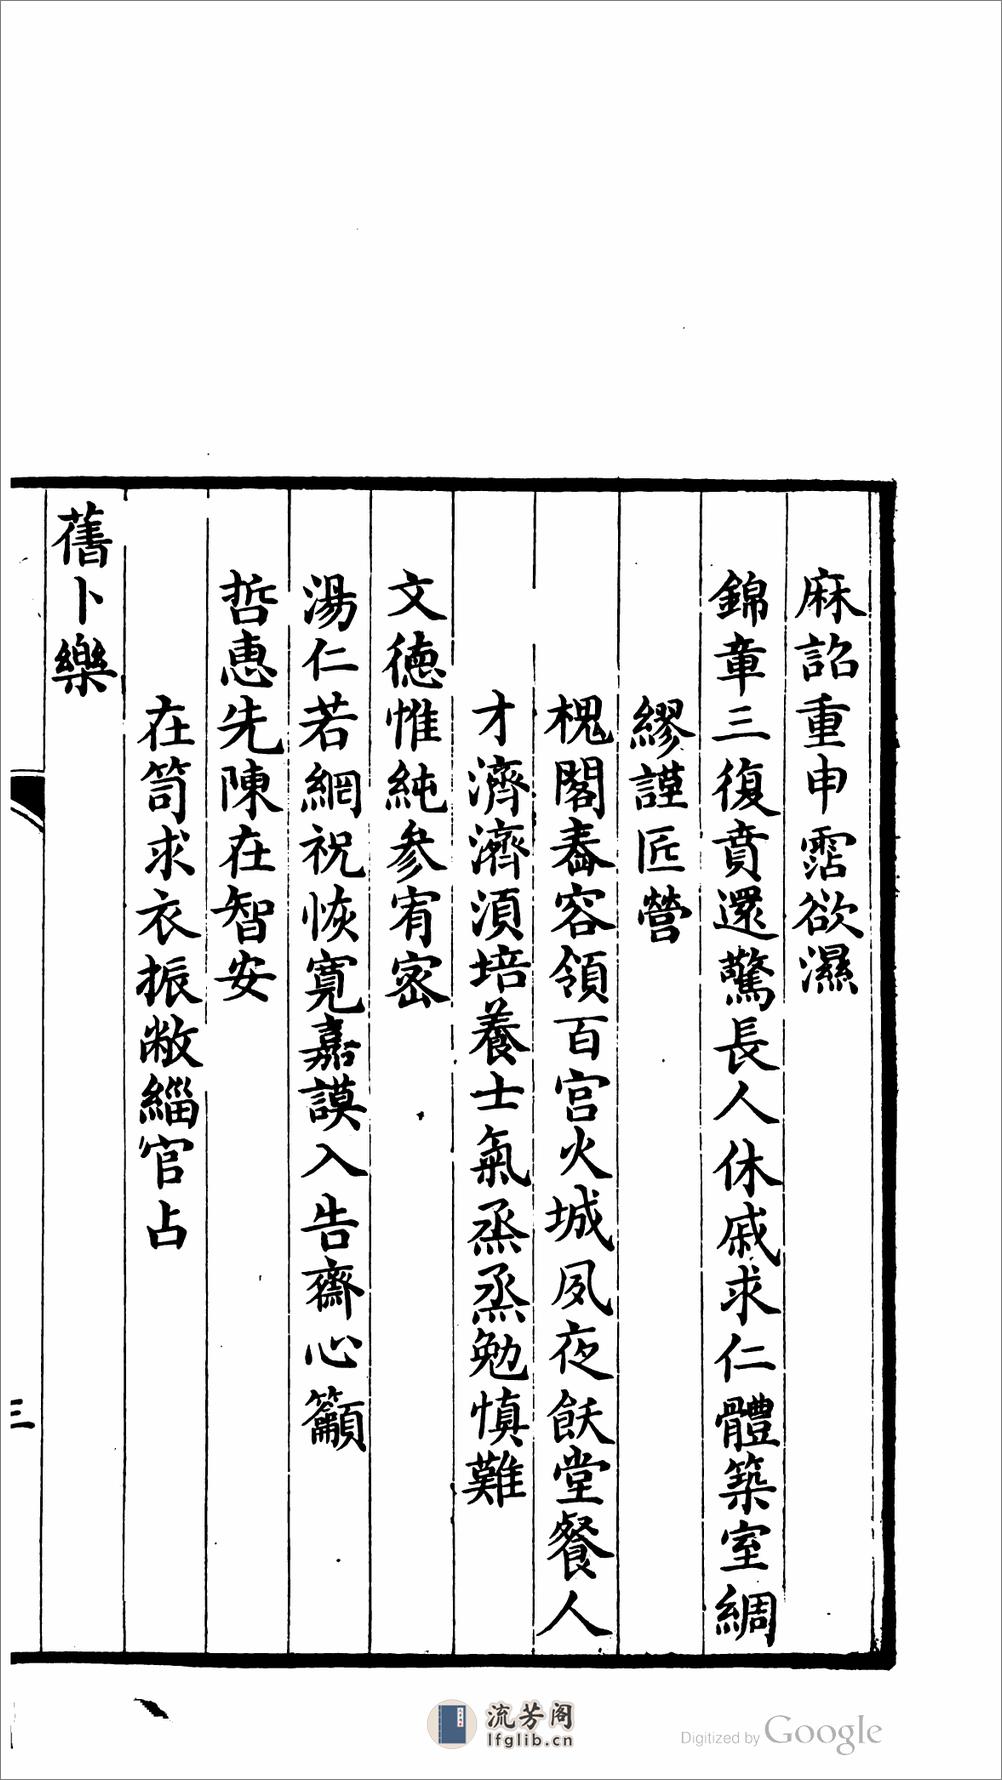 麻詔重申霑欲濕
錦章三復賁還驚長人休戚求仁體築室綢
繆謹匠營
槐閣春容領百官火城夙夜飫堂餐人
才濟濟須培養士氣烝烝勉慎難
文德惟純參宥密
湯仁若網祝恢寬嘉謨入告齋心籲
哲惠先陳在智安
在笥求衣振敝緇官占
舊卜樂
三
流芳阁
lfglib.cn
Digitized by Google